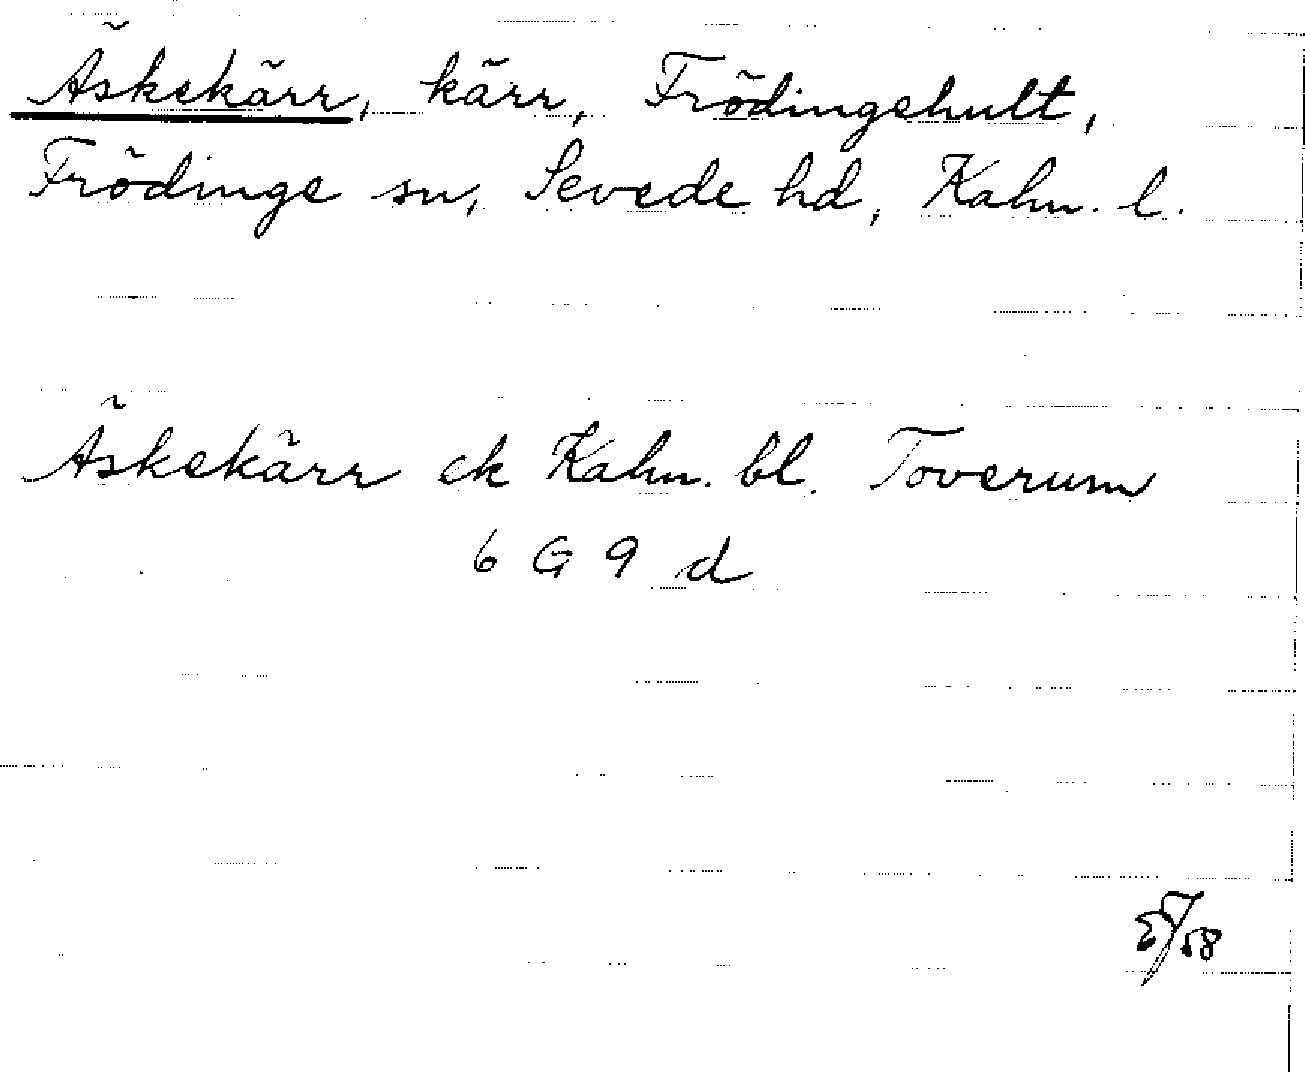 Äskekärr, kärr, Frödingehult,
Frödinge sn, Sevede hd, Kalm. l.
Äskekärr ek Kalm. bl. Toverum
6 G 9 d